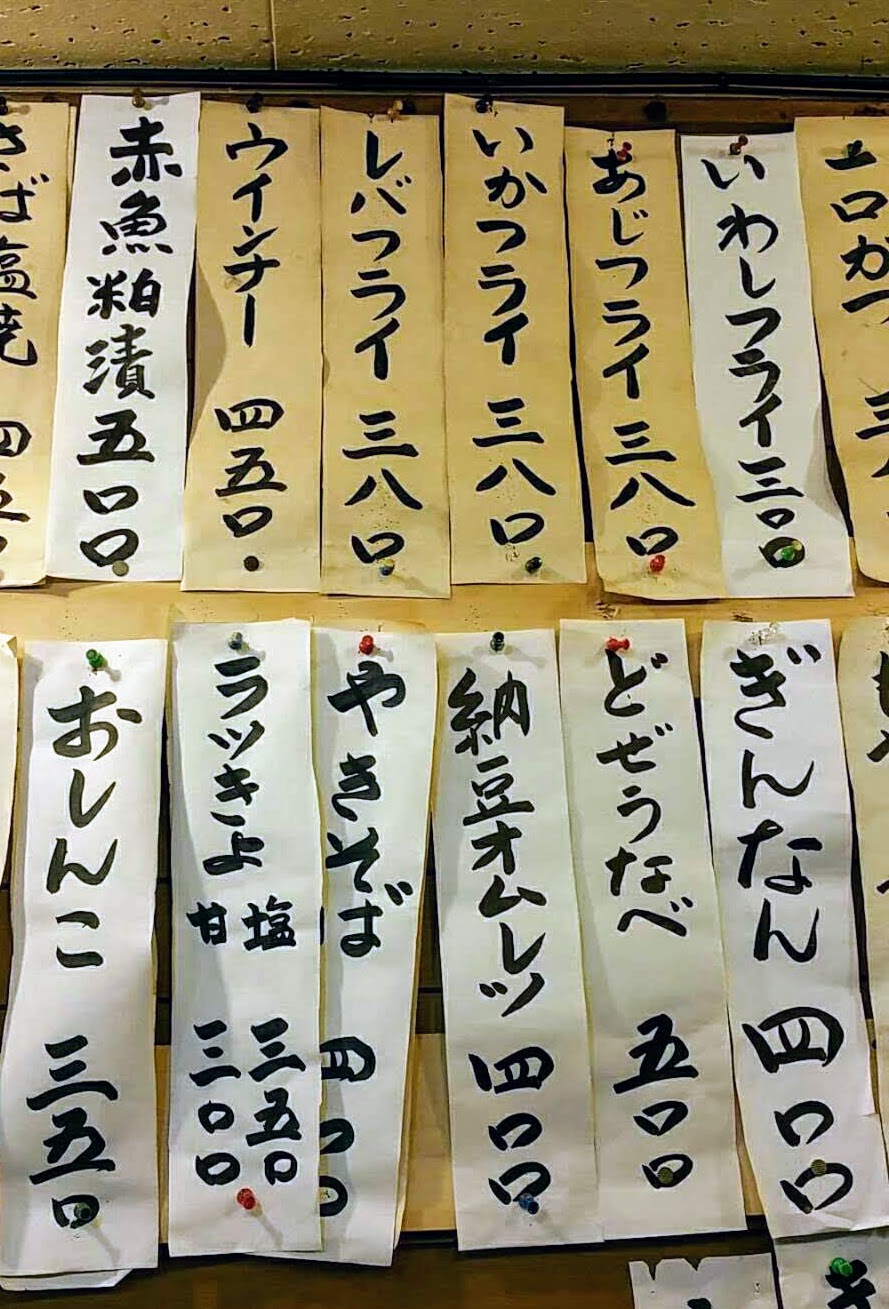 一口カツ 三八
いわしフライ 三〇〇
あじフライ 三八〇
いかフライ 三八〇
レバフライ 三八〇
ウインナー 四五〇
赤魚粕漬 五〇〇
さば塩焼 四五〇
ぎんなん 四〇〇
どぜうなべ 五〇〇
納豆オムレツ 四〇〇
やきそば 四〇〇
ラツきよ
塩 三五〇
甘 三〇〇
おしんこ 三五〇